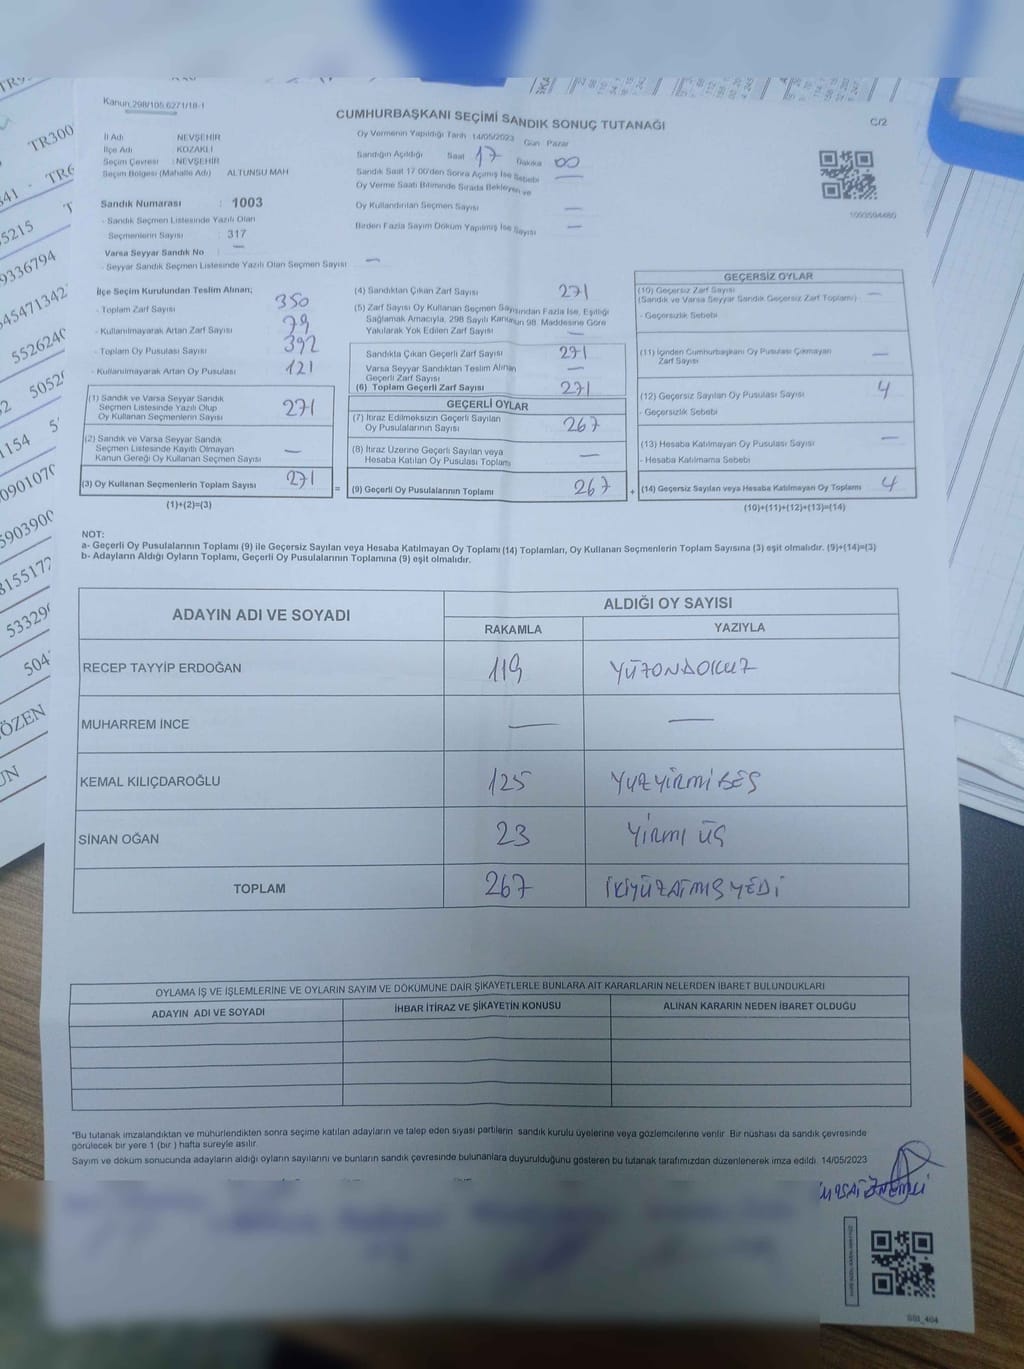 Kanun 298/105,6271/18-1
CUMHURBAŞKANI SEÇİMİ SANDIK SONUÇ TUTANAĞI
C/2
İl Adı NEVŞEHİR
İlçe Adı KOZAKLI
Seçim Çevresi : NEVŞEHİR
Seçim Bölgesi (Mahalle Adı) ALTUNSU MAH
Sandık Numarası : 1003
- Sandık Seçmen Listesinde Yazılı Olan
Seçmenlerin Sayısı : 317
Varsa Seyyar Sandık No : —
- Seyyar Sandık Seçmen Listesinde Yazılı Olan Seçmen Sayısı : —
Oy Vermenin Yapıldığı Tarih 14/05/2023 Gün Pazar
Sandığın Açıldığı Saat 17 Dakika 00
Sandık Saat 17:00'den Sonra Açımış İse Sebebi —
Oy Verme Saati Bitiminde Sırada Bekleyen ve
Oy Kullandırılan Seçmen Sayısı —
Birden Fazla Sayım Döküm Yapılmış İse Sayısı —
1093594480
İlçe Seçim Kurulundan Teslim Alınan;
- Toplam Zarf Sayısı 350
- Kullanılmayarak Artan Zarf Sayısı 79
- Toplam Oy Pusulası Sayısı 392
- Kullanılmayarak Artan Oy Pusulası 121
(1) Sandık ve Varsa Seyyar Sandık
Seçmen Listesinde Yazılı Olup
Oy Kullanan Seçmenlerin Sayısı 271
(2) Sandık ve Varsa Seyyar Sandık
Seçmen Listesinde Kayıtlı Olmayan
Kanun Gereği Oy Kullanan Seçmen Sayısı —
(3) Oy Kullanan Seçmenlerin Toplam Sayısı 271
(1)+(2)=(3)
=
(4) Sandıktan Çıkan Zarf Sayısı 271
(5) Zarf Sayısı Oy Kullanan Seçmen Sayısından Fazla İse, Eşitliği
Sağlamak Amacıyla, 298 Sayılı Kanunun 98. Maddesine Göre
Yakılarak Yok Edilen Zarf Sayısı —
Sandıkta Çıkan Geçerli Zarf Sayısı 271
Varsa Seyyar Sandıktan Teslim Alınan
Geçerli Zarf Sayısı —
(6) Toplam Geçerli Zarf Sayısı 271
GEÇERLİ OYLAR
(7) İtiraz Edilmeksizin Geçerli Sayılan
Oy Pusulalarının Sayısı 267
(8) İtiraz Üzerine Geçerli Sayılan veya
Hesaba Katılan Oy Pusulası Toplamı —
(9) Geçerli Oy Pusulalarının Toplamı 267
+
GEÇERSİZ OYLAR
(10) Geçersiz Zarf Sayısı —
(Sandık ve Varsa Seyyar Sandık Geçersiz Zarf Toplamı)
- Geçersizlik Sebebi
(11) İçinden Cumhurbaşkanı Oy Pusulası Çıkmayan
Zarf Sayısı —
(12) Geçersiz Sayılan Oy Pusulası Sayısı 4
- Geçersizlik Sebebi
(13) Hesaba Katılmayan Oy Pusulası Sayısı —
- Hesaba Katılmama Sebebi
(14) Geçersiz Sayılan veya Hesaba Katılmayan Oy Toplamı 4
(10)+(11)+(12)+(13)=(14)
NOT:
a- Geçerli Oy Pusulalarının Toplamı (9) ile Geçersiz Sayılan veya Hesaba Katılmayan Oy Toplamı (14) Toplamları, Oy Kullanan Seçmenlerin Toplam Sayısına (3) eşit olmalıdır. (9)+(14)=(3)
b- Adayların Aldığı Oyların Toplamı, Geçerli Oy Pusulalarının Toplamına (9) eşit olmalıdır.
ADAYIN ADI VE SOYADI
ALDIĞI OY SAYISI
RAKAMLA YAZIYLA
RECEP TAYYİP ERDOĞAN 119 YÜZONDOKUZ
MUHARREM İNCE — —
KEMAL KILIÇDAROĞLU 125 YUZYİRMİBEŞ
SİNAN OĞAN 23 YİRMİ ÜÇ
TOPLAM 267 İKİYÜZATMIŞ YEDİ
OYLAMA İŞ VE İŞLEMLERİNE VE OYLARIN SAYIM VE DÖKÜMÜNE DAİR ŞİKAYETLERLE BUNLARA AİT KARARLARIN NELERDEN İBARET BULUNDUKLARI
ADAYIN ADI VE SOYADI İHBAR İTİRAZ VE ŞİKAYETİN KONUSU ALINAN KARARIN NEDEN İBARET OLDUĞU
*Bu tutanak imzalandıktan ve mühürlendikten sonra seçime katılan adayların ve talep eden siyasi partilerin sandık kurulu üyelerine veya gözlemcilerine verilir. Bir nüshası da sandık çevresinde
görülecek bir yere 1 (bir) hafta süreyle asılır.
Sayım ve döküm sonucunda adayların aldığı oyların sayılarını ve bunların sandık çevresinde bulunanlara duyurulduğunu gösteren bu tutanak tarafımızdan düzenlenerek imza edildi. 14/05/2023
TR300
5215
9336794
545471342
552624
5052
1154
0901070
5903900
8155177
53329
504
ÖZEN
UN